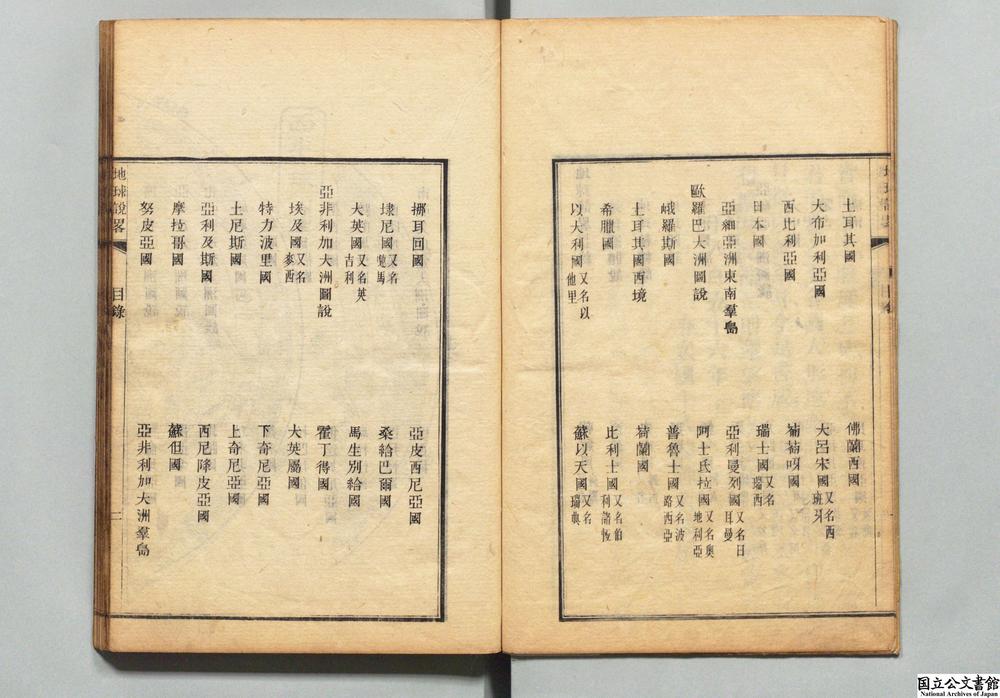 土耳其國
大布加利亞國
西比利亞國
日本國
亞細亞洲東南羣島
歐羅巴大洲圖說
峨羅斯國
土耳其國西境
希臘國
以大利國又名以他里
佛蘭西國
大呂宋國又名西班牙
葡萄呀國
瑞士國又名瑞西
亞利曼列國又名日耳曼
阿士氐拉國又名奧地利亞
普魯士國又名波路西亞
荷蘭國
比利士國又名伯利諸恆
蘇以天國又名瑞典
挪耳回國
埭尼國又名馬
大英國又名英吉利
亞非利加大洲圖說
埃及國又名麥西
特力波里國
土尼斯國
亞利及斯國
摩拉哥國
努皮亞國
亞皮西尼亞國
桑給巴爾國
馬生別給國
霍丁得國
大英屬國
下奇尼亞國
上奇尼亞國
西尼降皮亞國
蘇但國
亞非利加大洲羣島
地球說畧 目錄 二
国立公文書館
National Archives of Japan